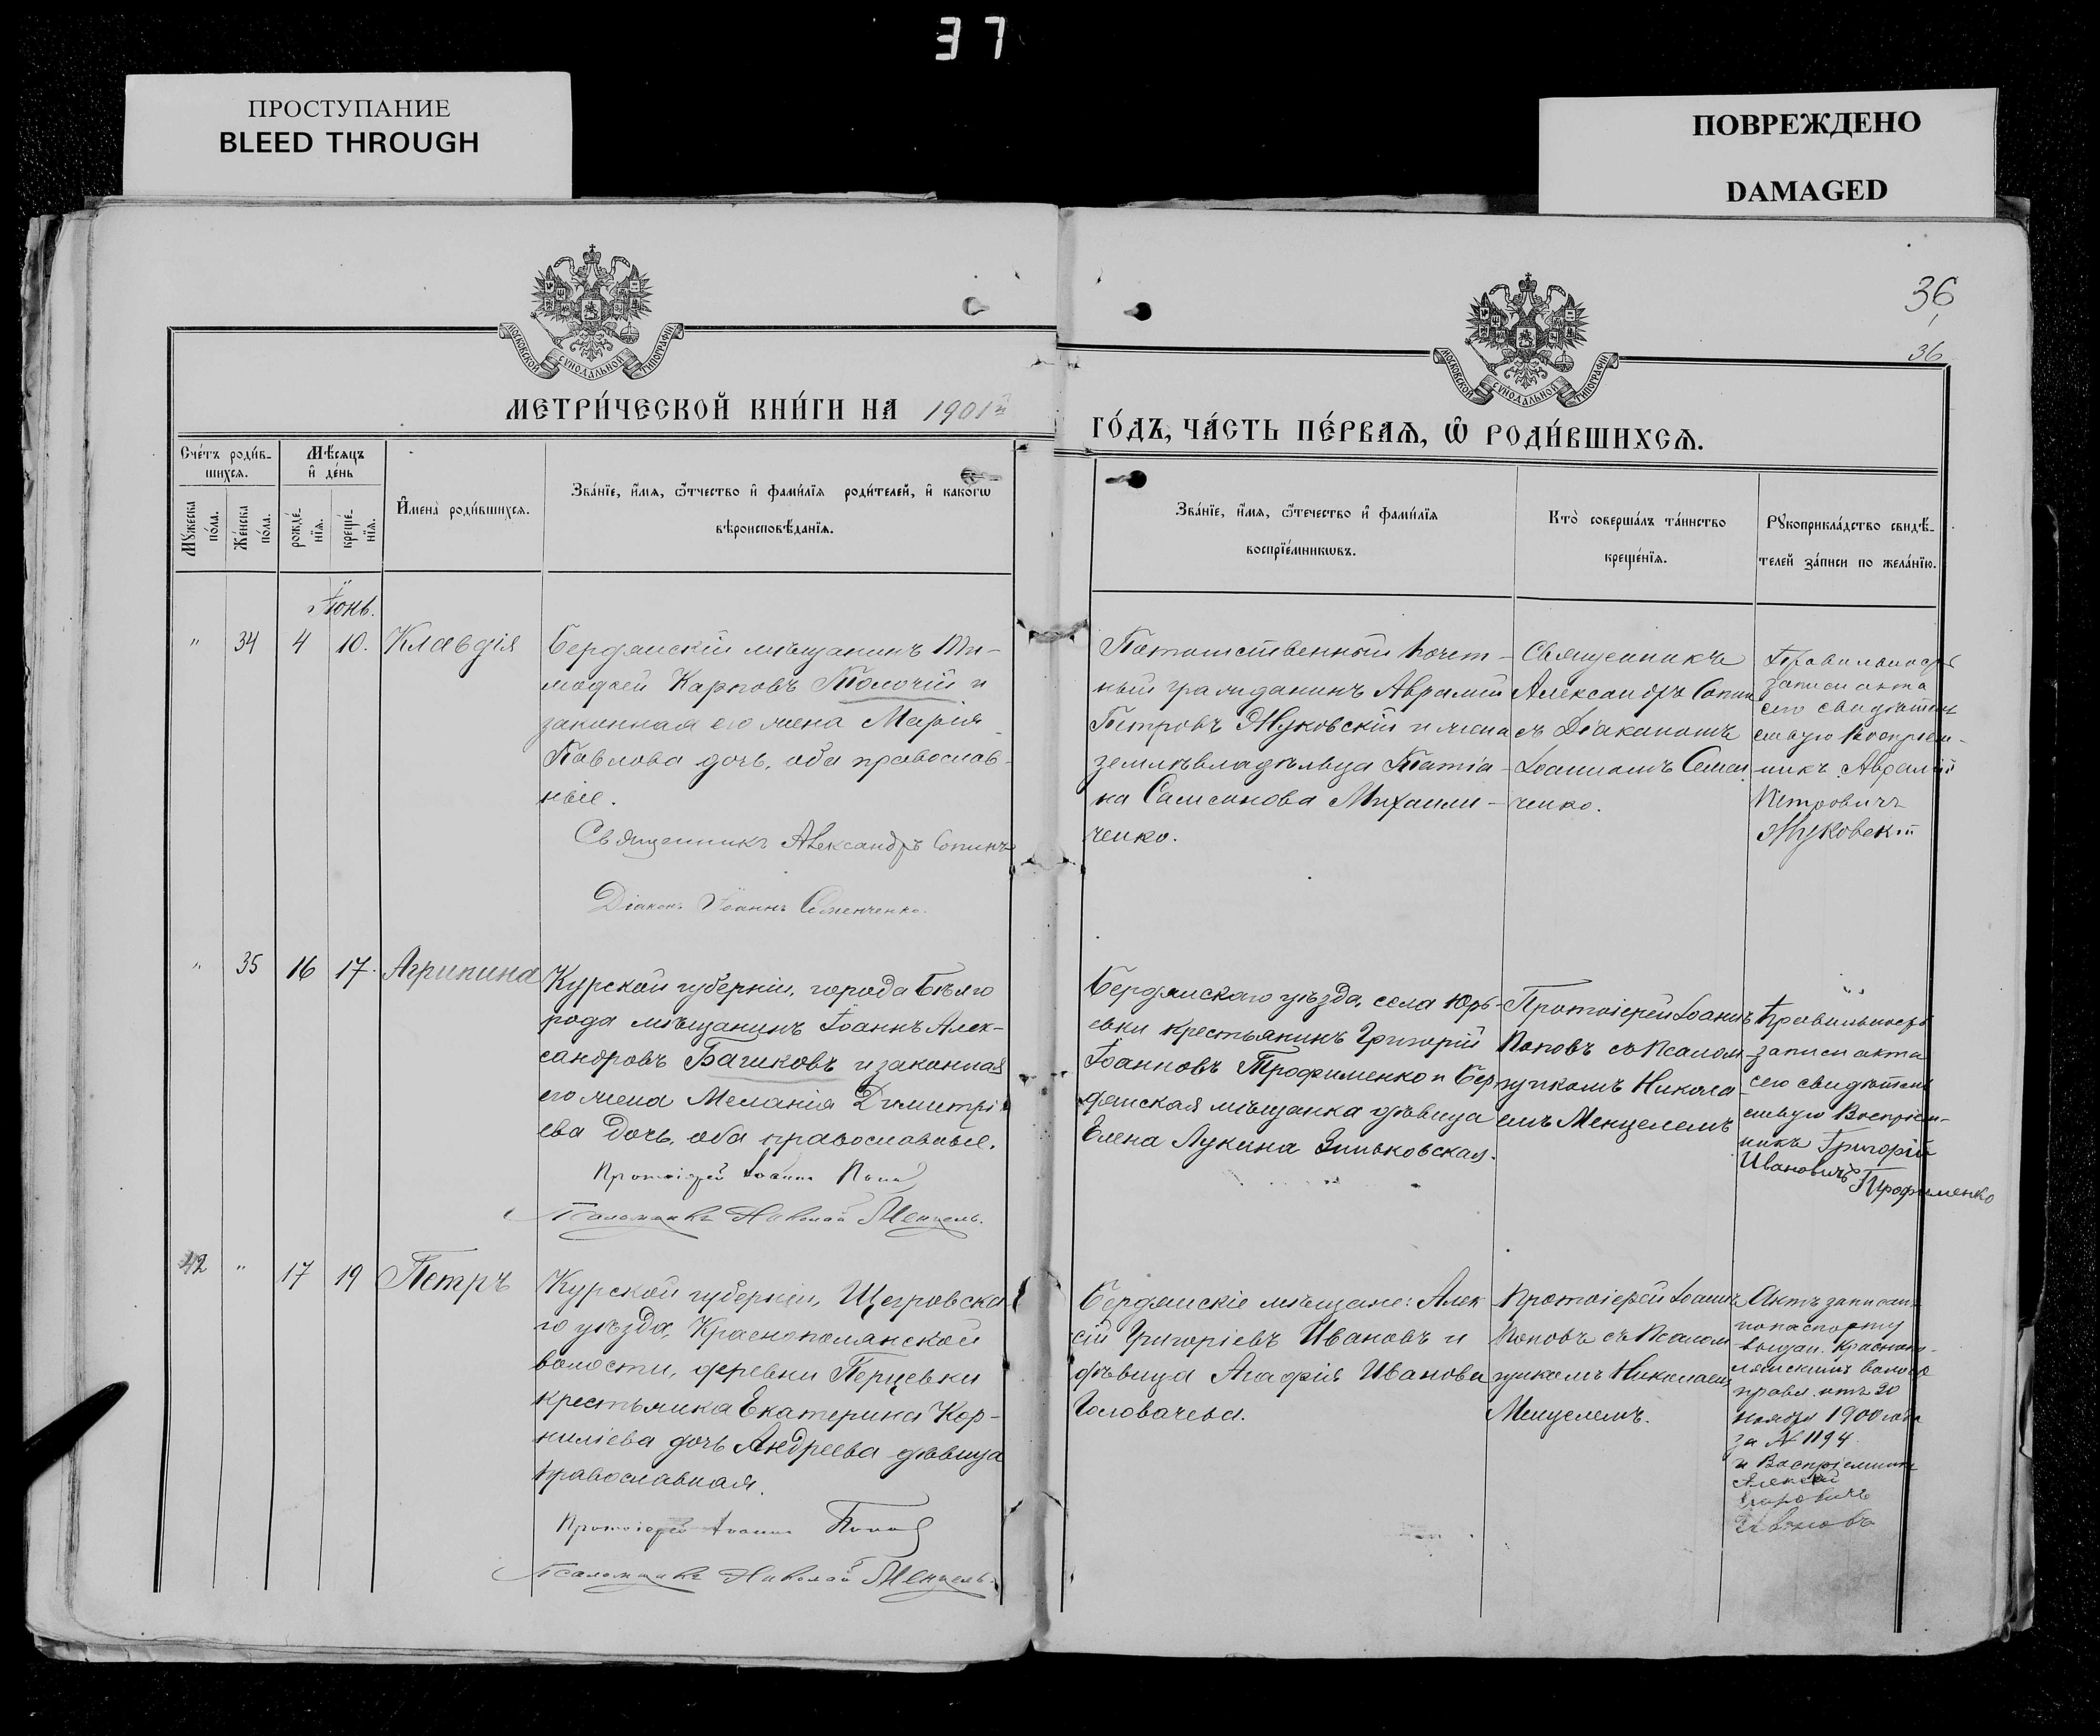 37
ПРОСТУПАНИЕ
BLEED THROUGH
ПОВРЕЖДЕНО
DAMAGED
36
36
МОСКОВСКОЙ СУНОДАЛЬНОЙ ТИПОГРАФІИ
МОСКОВСКОЙ СУНОДАЛЬНОЙ ТИПОГРАФІИ
МЕТРИ́ЧЕСКОЙ КНИ́ГИ НА 1901й
ГО́ДЪ, ЧА́СТЬ ПЕ́РВАѦ, Ѽ РОДИ́ВШИХСѦ.
Сче́тъ роди́в-
шихся.
Мѣ́сяцъ
и҆ де́нь
Мꙋ́жеска
по́ла.
Же́нска
по́ла.
рожде́-
нїя.
креще́-
нїя.
И҆мена̀ роди́вшихся.
Зва́нїе, и҆́мя, ѻ҆́тчество и҆ фами́лїя роди́телей, и҆ како́гѡ
вѣроисповѣ́данїя.
Зва́нїе, и҆́мя, ѻ҆те́чество и҆ фами́лїя
воспрїе́мникѡвъ.
Кто̀ соверша́лъ та́инство
креще́нїя.
Рꙋкоприкла́дство свидѣ́-
телей за́писи по жела́нїю.
Іюнь.
" 34 4 10. Клавдія
Бердянскій мѣщанинъ Ти-
мофей Карповъ Толочій и
законная его жена Марія
Павлова дочь, оба православ-
ные.
Священникъ Александръ Сопинъ
Діаконъ Іоаннъ Семенченко.
Потомственный почет-
ный гражданинъ Аврамій
Петровъ Жуковскій и жена
землѣвладѣльца Татіа-
на Самсонова Михаили-
ченко.
Священникъ
Александръ Сопин
съ Діакономъ
Іоанномъ Семен
ченко.
Правильность
записи акта
сего свидѣтель
ствую Воспріем-
никъ Аврамій
Петровичъ
Жуковскій
" 35 16 17. Агрипина
Курской губерніи, города Бѣлго
рода мѣщанинъ Іоаннъ Алек-
сандровъ Башковъ и законная
его жена Меланія Димитрі
ева дочь, оба православные.
Протоіерей Іоаннъ Попов
Псаломщикъ Николай Менцель.
Бердянскаго уѣзда, села Юрь-
евки крестьянинъ Григорій
Іоанновъ Трофименко и Бер
дянская мѣщанка дѣвица
Елена Лукина Зиньковская.
Протоіерей Іоаннъ
Поповъ съ Псалом
щикомъ Никола
емъ Менцелемъ
Правильность
записи акта
сего свидѣтель
ствую Воспріем-
никъ Григорій
Ивановичъ
Трофименко
42 " 17 19 Петръ
Курской губерніи, Щегровска
го уѣзда, Краснополянской
волости, деревни Перцевки
крестьянка Екатерина Кор-
ниліева дочь Андреева дѣвица
православная.
Протоіерей Іоаннъ Попов
Псаломщикъ Николай Менцель.
Бердянскіе мѣщане: Алек
сій Григоріевъ Ивановъ и
дѣвица Агафія Иванова
Головачева.
Протоіерей Іоаннъ
Поповъ съ Псалом
щикомъ Николаемъ
Менцелемъ.
Актъ записан
по паспорту
выдан. Краснопо-
лянскимъ волост
правл. отъ 20
ноября 1900 года
за № 1194.
и Воспріемникъ
Алексѣй
Ивановъ